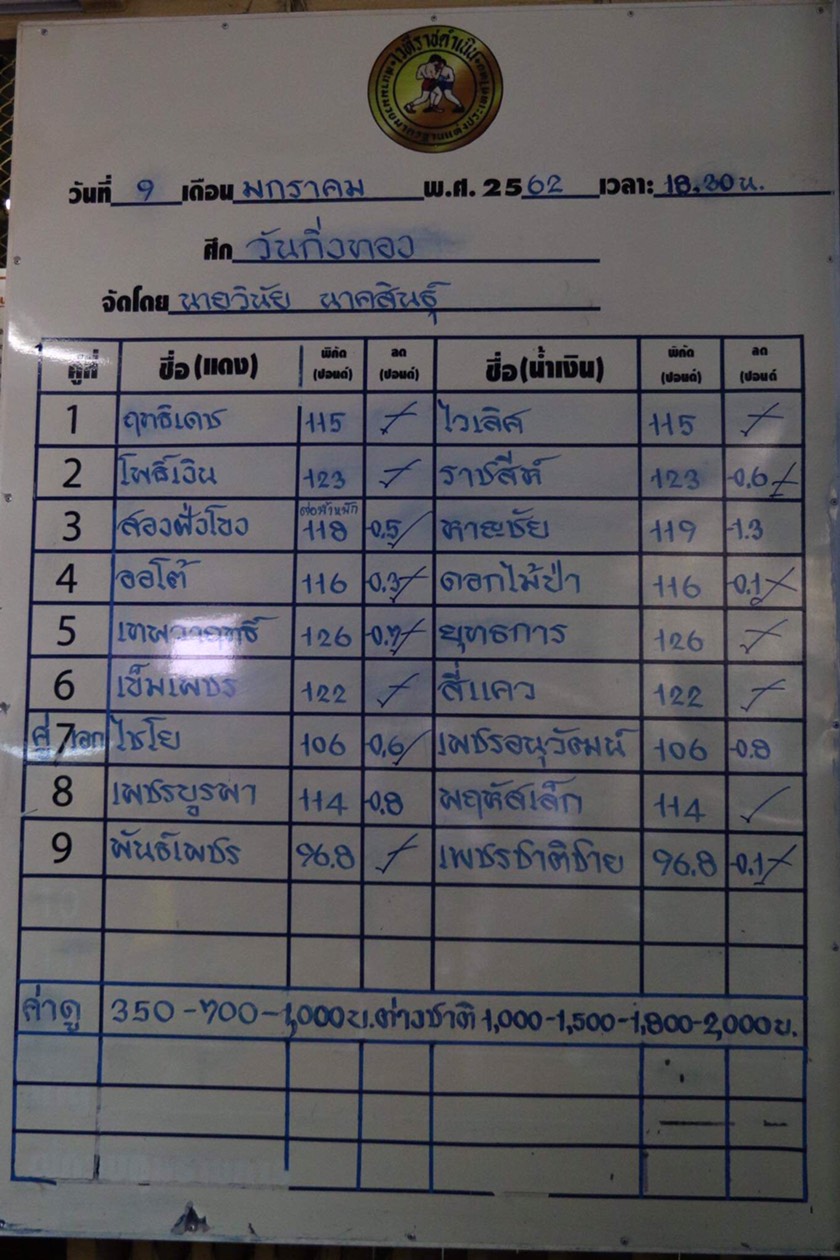 เวทีราชดำเนิน
วันที่ 9 เดือน มกราคม พ.ศ. 2562 เวลา: 18.30 น.
ศึก วันกิ่งทอง
จัดโดย นายวินัย นาคสินธุ์
คู่ที่ ชื่อ (แดง) พิกัด (ปอนด์) ลด (ปอนด์) ชื่อ (น้ำเงิน) พิกัด (ปอนด์) ลด (ปอนด์
1 ฤทธิเดช 115 ไวเลิศ 115
2 โพธิ์เงิน 123 ราชสีห์ 123 -0.6
ต่อน้ำหนัก
3 สองฝั่งโขง 118 -0.5 หาญชัย 119 -1.3
4 ออโต้ 116 -0.3 ดอกไม้ป่า 116 -0.1
5 126 -0.7 ยุทธการ 126
6 เข็มเพชร 122 สี่แคว 122
คู่ 7 เอก ไชโย 106 -0.6 เพชรอนุวัฒน์ 106 -0.8
8 เพชรบูรพา 114 -0.8 พฤหัสเล็ก 114
9 พันธ์เพชร 96.8 เพชรชาติชาย 96.8 -0.1
ค่าดู 350 - 700 - 1,000 บ. ต่างชาติ 1,000-1,500-1,800-2,000 บ.